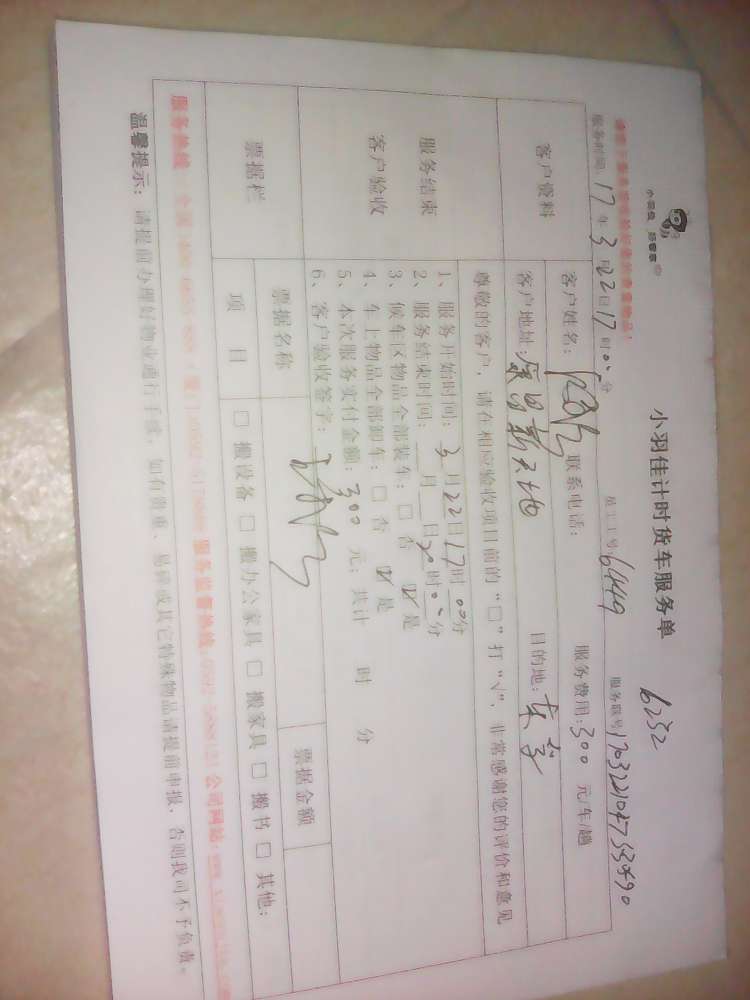 小羽佳计时货车服务单
6232
服务时间: 17年3月22日17时00分 员工工号 6449 服务账号
客户资料 客户姓名: 联系电话: 服务费用:300 元/车/趟
客户地址: 新天地 目的地:东孚
尊敬的客户,请在相应验收项目前的“□”打“√”,非常感谢您的评价和意见
服务结束
客户验收
1、服务开始时间:3月22日17时00分
2、服务结束时间: 月 日20时00分
3、候车区物品全部装车:□否 ☑是
4、车上物品全部卸车:□否 ☑是
5、本次服务实付金额:300元;共计 时 分
6、客户验收签字:
票据栏 票据名称 票据金额
项 目 □搬设备 □搬办公家具 □搬家具 □搬书 □其他:
服务热线 服务监督热线: 公司网站:
温馨提示:请提前办理好物业通行手续,如有贵重、易碎或其它特殊物品请提前申报,否则我司不予负责。